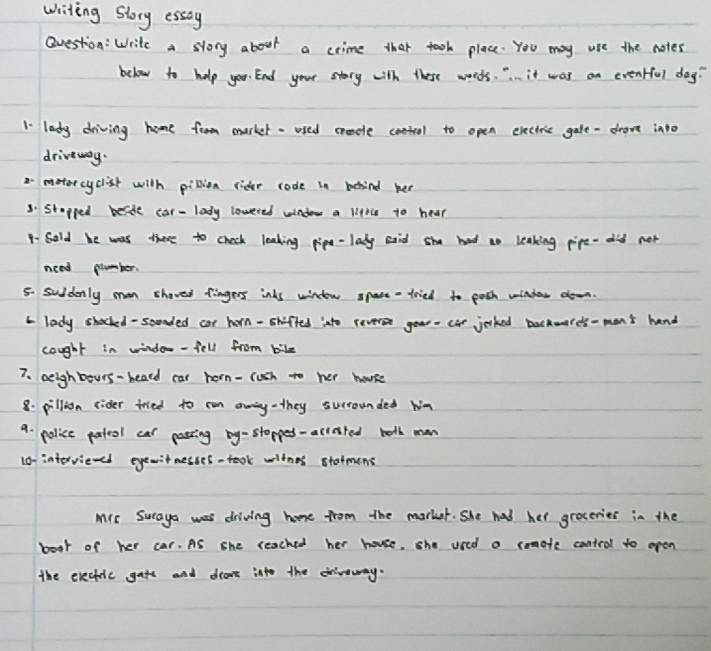 Writing Story essay
Question: Write a story about a crime that took place. You may use the notes
below to help you. End your story with these words. "... it was an eventful day."
1. lady driving home from market - used remote control to open electric gate - drove into
driveway.
2. motorcyclist with pillion rider rode in behind her
3. Stopped beside car - lady lowered window a little to hear
4. Said he was there to check leaking pipe - lady said she had no leaking pipe - did not
need plumber.
5. Suddenly man shoved fingers into window space - tried to push window down.
6 lady shocked - sounded car horn - shifted into reverse gear - car jerked backwards - man's hand
caught in window - fell from bike
7. neighbours - heard car horn - rush to her house
8. pillion rider tried to run away - they surrounded him
9. police patrol car passing by - stopped - arrested both man
10. interviewed eyewitnesses - took witnes statmens
Mrs Suraya was driving home from the market. She had her groceries in the
boot of her car. As she reached her house, she used a remote control to open
the electric gate and drove into the driveway.